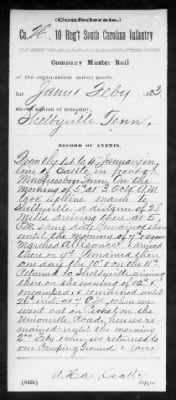 (Confederate.)
Co. H, 10 Reg't South Carolina Infantry
Company Muster Roll
of the organization named above,
for Jan'y & Feb'y, 1863
Shelbyville Tenn,
RECORD OF EVENTS.
From the 1st to 4 January in
line of Battle in front of
Murfreesboro Tenn, On the
morning of 5" at 3 Oclk A.M.
took up line march to
Shelbyville a distance of 28
Miles, arriving there at 5
P.M. same day. Remained there
until the morning of 7" again
Marched Allisonia. Arrived
there on 9" Remained there
one day the 10" on the 11"
Returned to Shelbyville arriving
there on the evening of 12"
encamped & remained until
when we
went out on Picket on the
Unionville Road, here re-
mained until the morning
Feby when we returned to
our Camping Ground
Copyist.